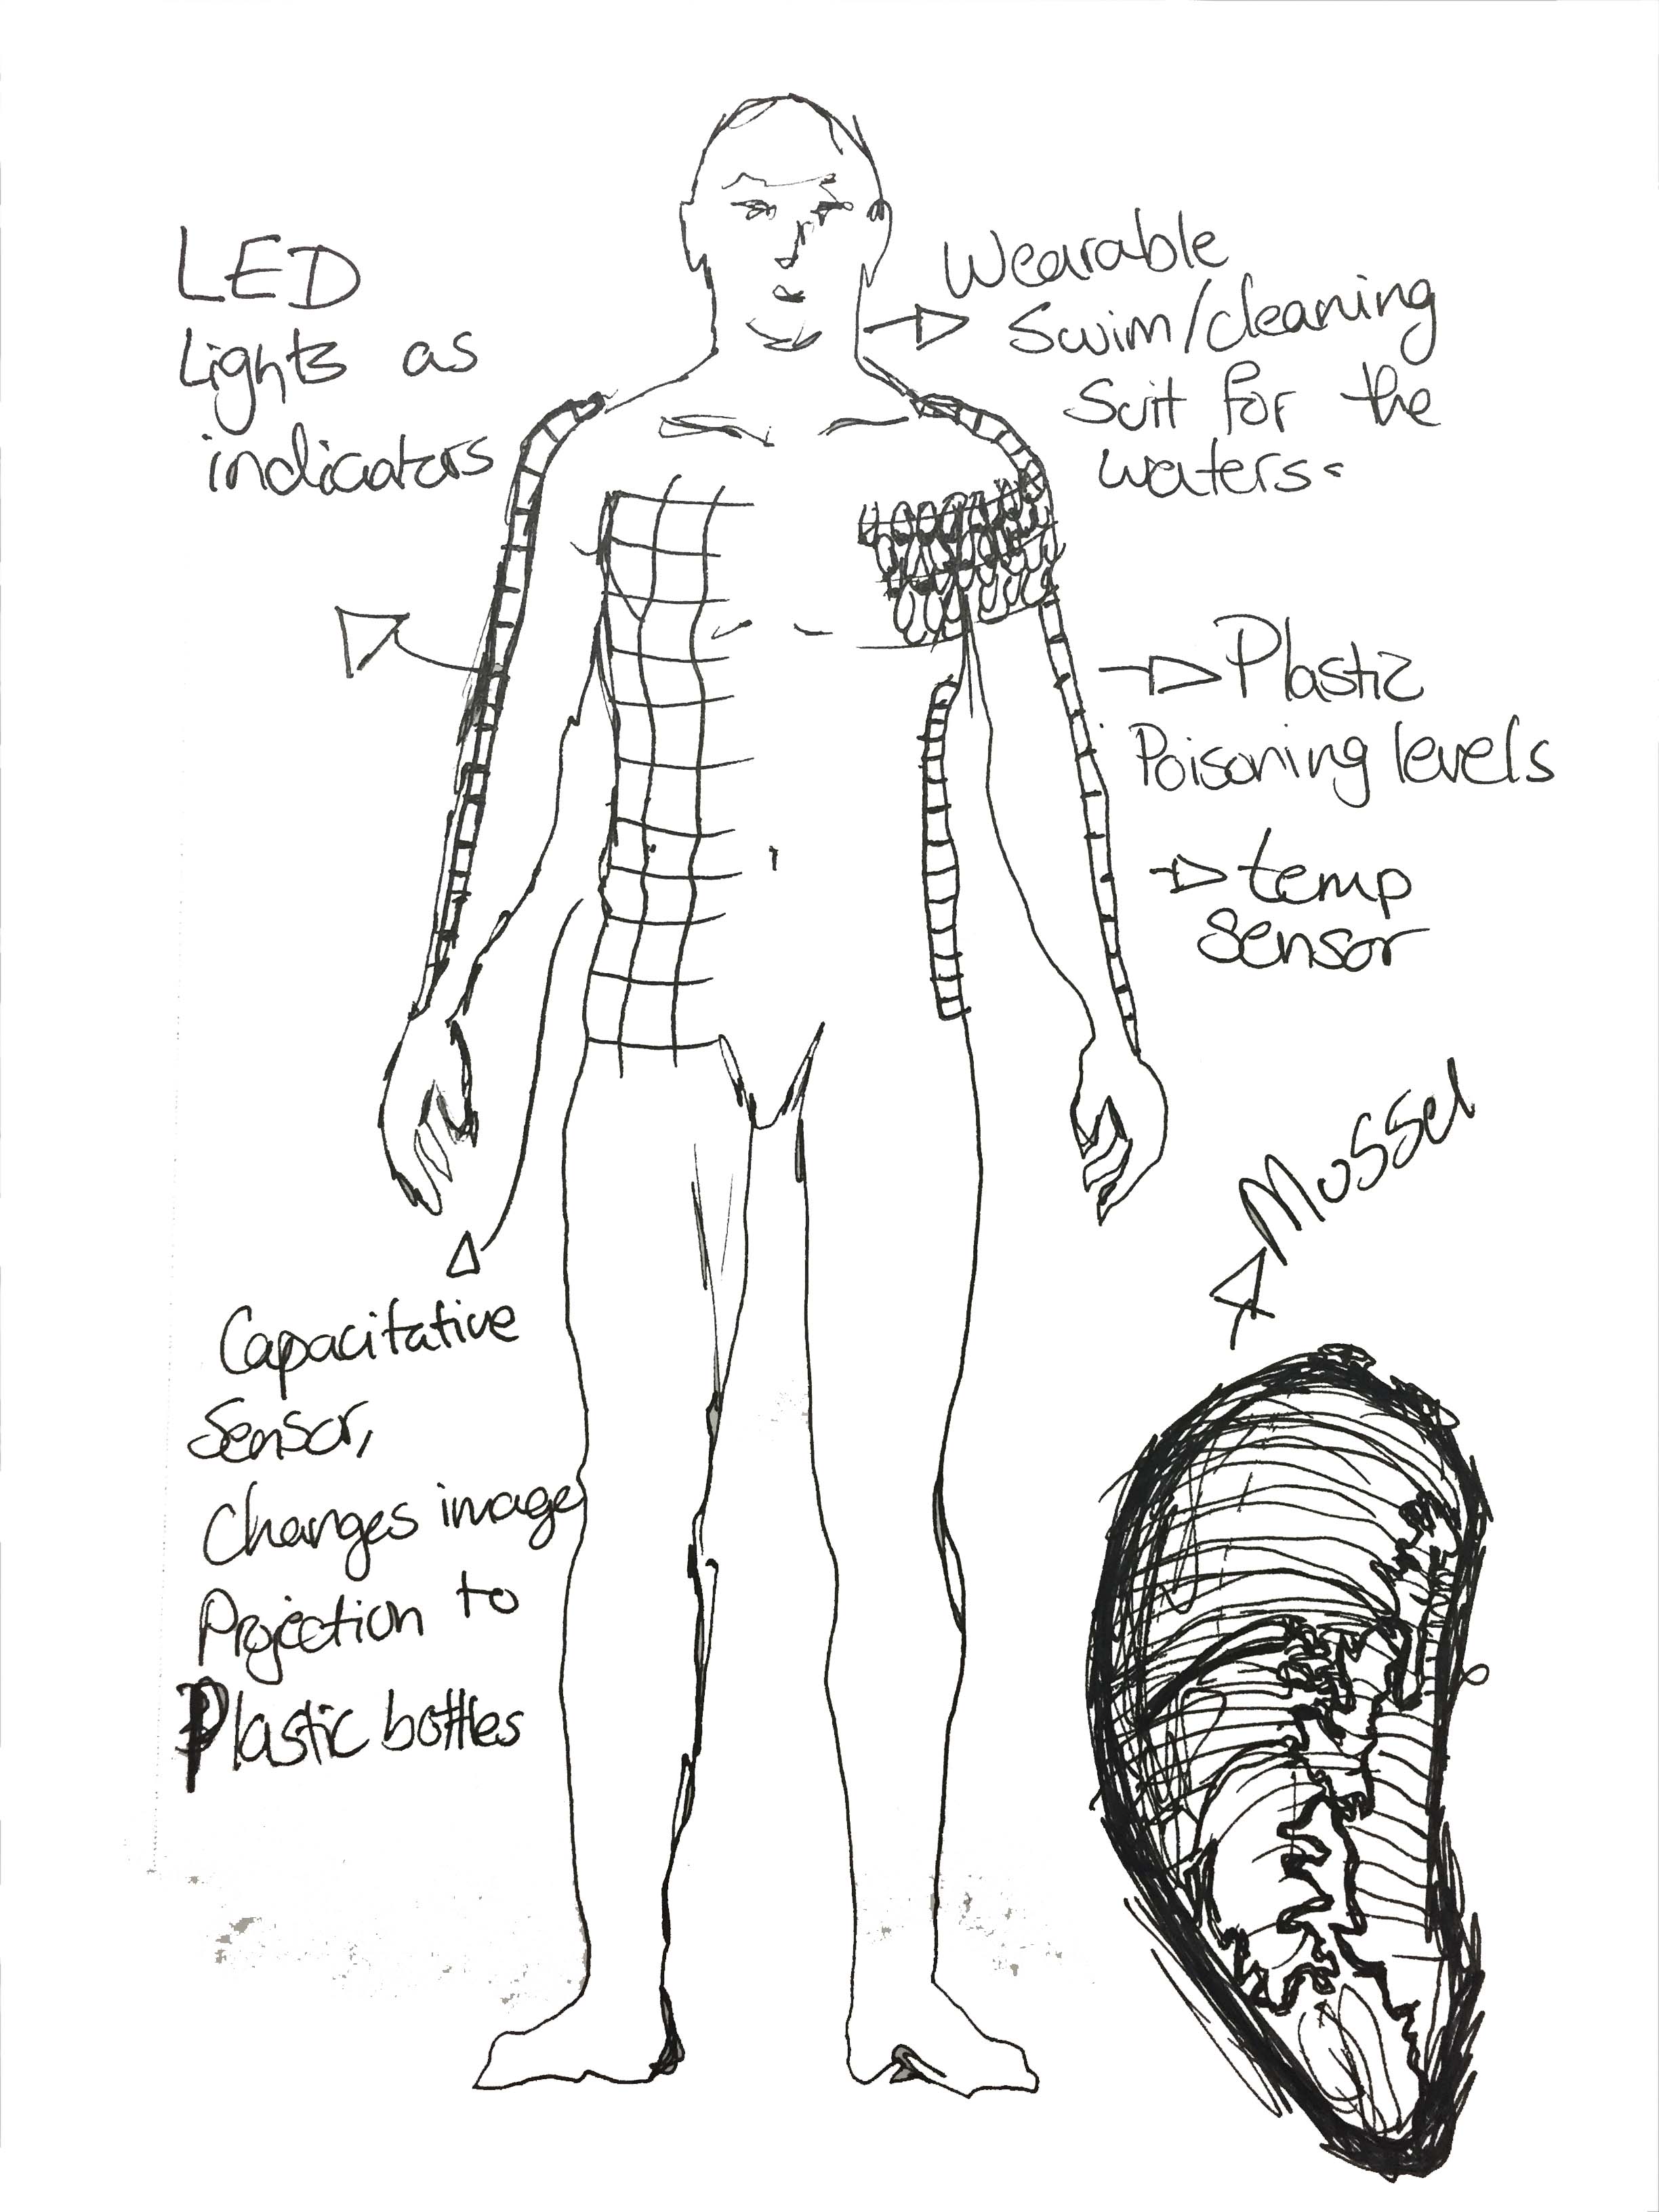 LED
Lights as
indicators
Wearable
Swim/cleaning
Suit for the
waters.
Plastic
Poisoning levels
temp
Sensor
Mussel
Capacitative
Sensor,
Changes image
Projection to
Plastic bottles